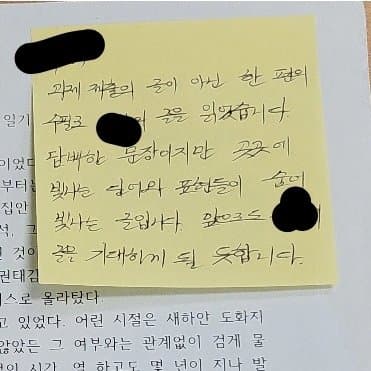 과제 제출의 글이 아닌 한 편의
수필로 의 글을 읽었습니다.
담백한 문장이지만 곳곳에
빛나는 단어와 표현들이 숨어
빛나는 글입니다. 앞으로도 의
글을 기대하게 될 듯합니다.
일기
이었다
부터는
집안
석, 그
것이
권태감
스로 올라탔다.
고 있었다. 어린 시절은 새하얀 도화지
않았든 그 여부와는 관계없이 검게 물
시간, 하고도 몇 년이 지나 발